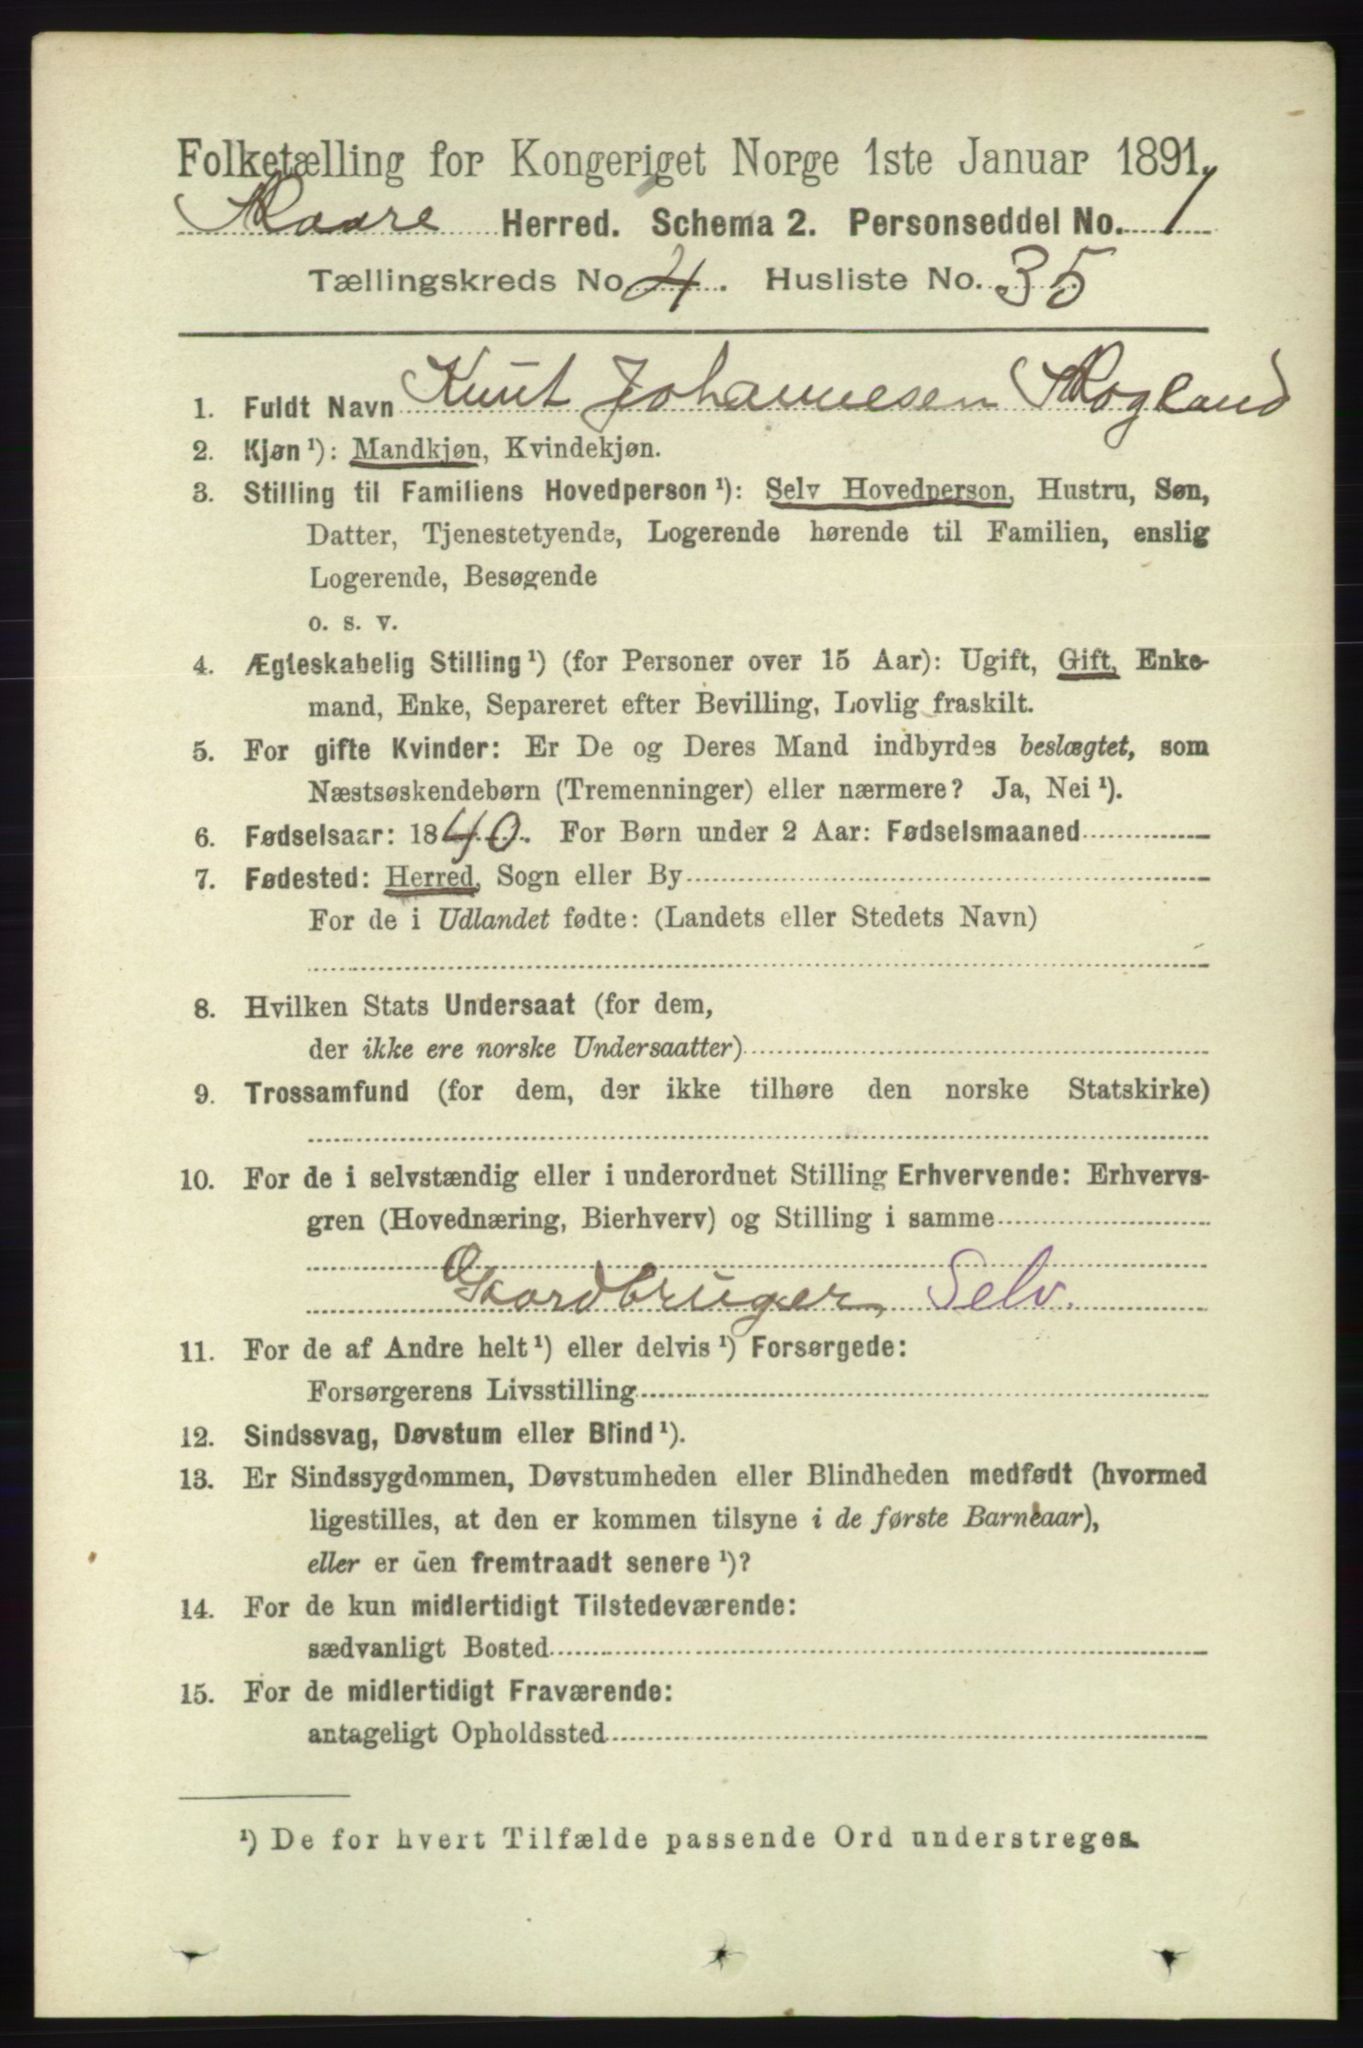 Folketælling for Kongeriget Norge 1ste Januar 1891.
Skaare Herred. Schema 2. Personseddel No. 1
Tællingskreds No 4. Husliste No. 35
1. Fuldt Navn Knut Johannesen Skogland
2. Kjøn ¹): Mandkjøn, Kvindekjøn.
3. Stilling til Familiens Hovedperson ¹): Selv Hovedperson, Hustru, Søn,
Datter, Tjenestetyende, Logerende hørende til Familien, enslig
Logerende, Besøgende
o. s. v.
4. Ægteskabelig Stilling ¹) (for Personer over 15 Aar): Ugift, Gift, Enke-
mand, Enke, Separeret efter Bevilling, Lovlig fraskilt.
5. For gifte Kvinder: Er De og Deres Mand indbyrdes beslægtet, som
Næstsøskendebørn (Tremenninger) eller nærmere? Ja, Nei ¹).
6. Fødselsaar: 1840. For Børn under 2 Aar: Fødselsmaaned
7. Fødested: Herred, Sogn eller By
For de i Udlandet fødte: (Landets eller Stedets Navn)
8. Hvilken Stats Undersaat (for dem,
der ikke ere norske Undersaatter)
9. Trossamfund (for dem, der ikke tilhøre den norske Statskirke)
10. For de i selvstændig eller i underordnet Stilling Erhvervende: Erhvervs-
gren (Hovednæring, Bierhverv) og Stilling i samme
Gaardbruger, Selv.
11. For de af Andre helt ¹) eller delvis ¹) Forsørgede:
Forsørgerens Livsstilling
12. Sindssvag, Døvstum eller Blind ¹).
13. Er Sindssygdommen, Døvstumheden eller Blindheden medfødt (hvormed
ligestilles, at den er kommen tilsyne i de første Barneaar),
eller er den fremtraadt senere ¹)?
14. For de kun midlertidigt Tilstedeværende:
sædvanligt Bosted
15. For de midlertidigt Fraværende:
antageligt Opholdssted
¹) De for hvert Tilfælde passende Ord understreges.